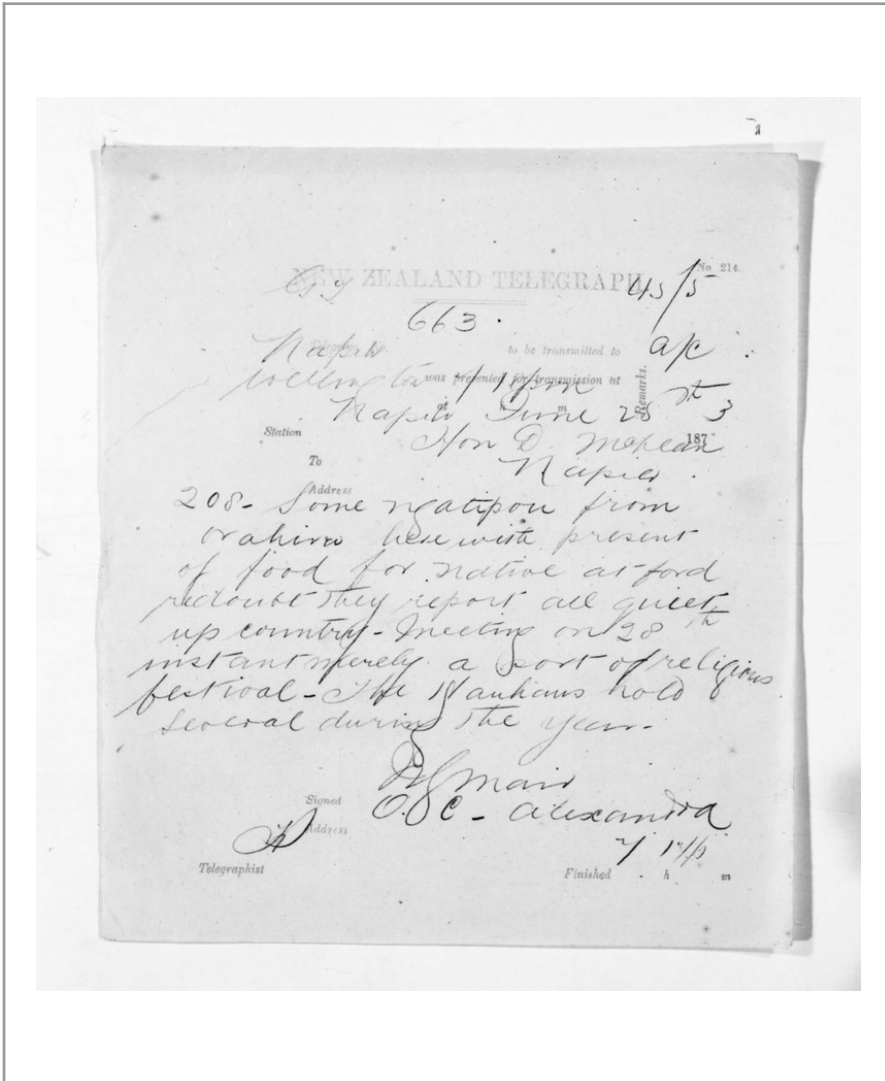 NEW ZEALAND TELEGRAPH. No. 214.
45/5
663.
Napier to be transmitted to a/c
Wellington was presented for transmission at Remarks.
at h m
Napier June 25th 3
Station 187
Hon D. McLean
To
Napier
Address
208 - Some ngatipou from
here with present
of food for native at ford
redoubt they report all quiet
up country - Meeting on 28th
instant merely a sort of religious
festival - The Hauhaus hold
several during the year -
Mair
Signed
O. C - Alexandra
Address
Telegraphist
Finished h m